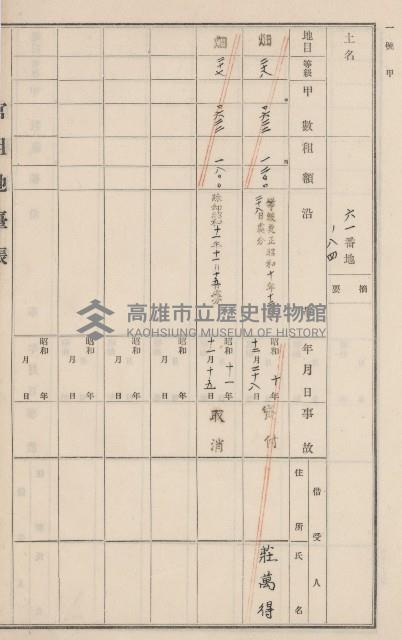 一號甲
土名
六一番地
ノ八四
摘要
地目 等級 甲數 租額 沿 年月日 事故 借受人 住所 氏名
畑 一二〇〇 等級更正昭和十年十
二八日處分
昭和十年
十二月二十八日 寄付 莊萬得
畑 一八〇〇 除却昭和十一年十一月十五
昭和十一年
十一月十五日 取消
昭和 年
月 日
昭和 年
月 日
昭和 年
月 日
昭和 年
月 日
官租地臺帳
高雄市立歷史博物館
KAOHSIUNG MUSEUM OF HISTORY